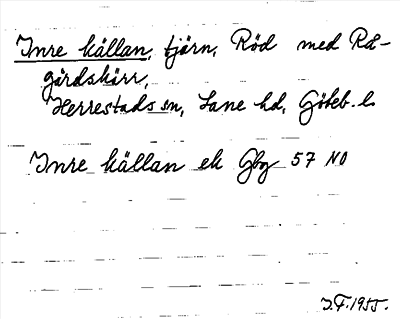 Inre källan, tjärn, Röd med Rå-
gårdskärr,
Herrestads sn, Lane hd, Göteb. l.
Inre källan ek Gbg 57 NO
J.F. 1955.